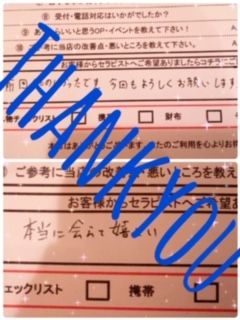 ⑧ 受付・電話対応はいかがでしたか？
⑨ あ らいいと思うOP・イベントを教えて下さい！
⑩ ご参考に当店の改善点・悪いところを教え
お客様からセラピストへご希望ありましたらコチラ
前回 ったです 今回もよろしくお願いします
物チェックリスト 携 財布
本 ありがとうござ のご利用を心よりお待
THANKYOU
ご参考に当店の改善 悪いところを教え
お客様からセラピストへご希望あ
本当に会えて嬉しい
ェックリスト 携帯